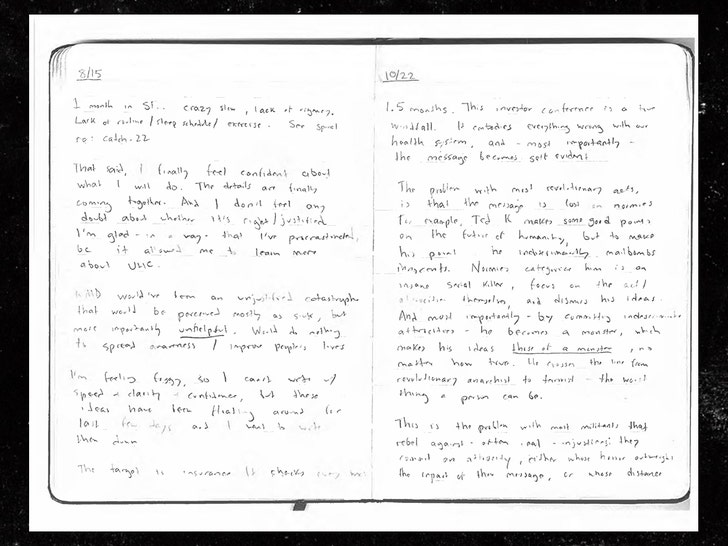 8/15
1 month in SF.. crazy slow, lack of urgency.
Lack of routine / sleep schedule / exercise.
so: catch-22
That said, I finally feel confident about
what I will do. The details are finally
coming together. And I don't feel any
doubt about whether it's right/justified.
I'm glad - in a way - that I've procrastinated,
be it allowed me to learn more
about UHC.
would've been an unjustified catastrophe
that would be perceived mostly as sick, but
more importantly unhelpful. Would do nothing
to spread awareness / improve people's lives
I'm feeling foggy, so I can't write w/
speed + clarity + confidence, but these
ideas have been floating around for
last few days and I want to write
them down
The target is insurance. It checks every
10/22
1.5 months. This investor conference is a true
windfall. It embodies everything wrong with our
health system, and - most importantly -
the message becomes self evident
The problem with most revolutionary acts,
is that the message is lost on normies
For example, Ted K makes some good points
on the future of humanity, but to make
his point he indiscriminantly mailbombs
innocents. Normies categorize him as an
insane serial killer, focus on the act/
themselves, and dismiss his ideas.
And most importantly - by committing indiscriminate
atrocities - he becomes a monster, which
makes his ideas those of a monster, no
matter how true. He crosses the line from
revolutionary anarchist to terrorist - the worst
thing a person can be.
This is the problem with most militants that
rebel against - often real - injustices: they
commit an atrocity, either whose horror outweighs
the impact of their message, or whose distance